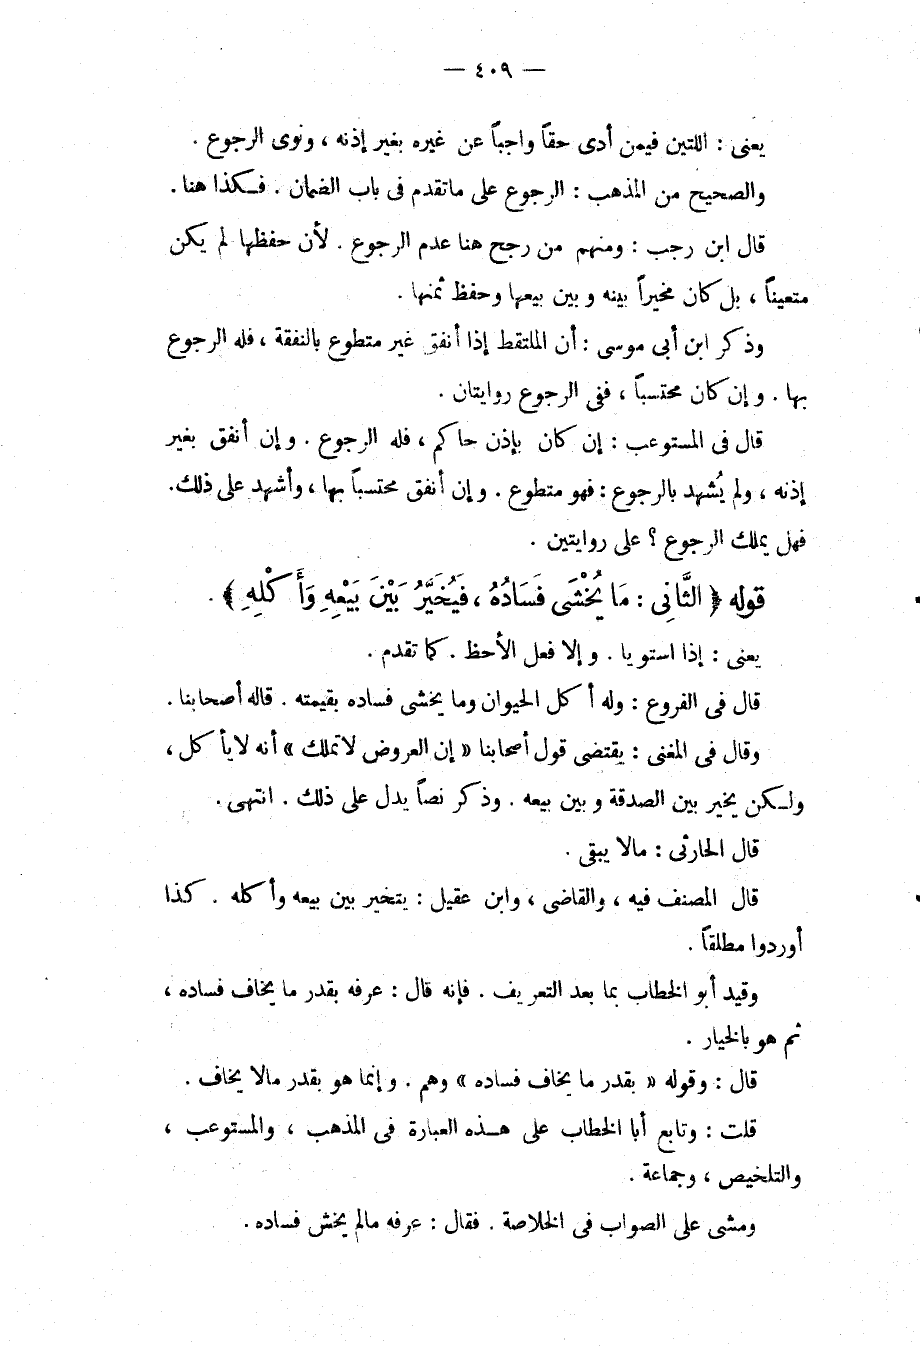 — ٤٠٩ —
يعنى : اللتين فيمن أدى حقاً واجباً عن غيره بغير إذنه ، ونوى الرجوع .
والصحيح من المذهب : الرجوع على ماتقدم فى باب الضمان . فكذا هنا .
قال ابن رجب : ومنهم من رجح هنا عدم الرجوع . لأن حفظها لم يكن
متعيناً ، بل كان مخيراً بينه وبين بيعها وحفظ ثمنها .
وذكر ابن أبى موسى : أن الملتقط إذا أنفق غير متطوع بالنفقة ، فله الرجوع
بها . وإن كان محتسباً ، ففى الرجوع روايتان .
قال فى المستوعب : إن كان بإذن حاكم ، فله الرجوع . وإن أنفق بغير
إذنه ، ولم يُشهد بالرجوع : فهو متطوع . وإن أنفق محتسباً بها ، وأشهد على ذلك .
فهل يملك الرجوع ؟ على روايتين .
قوله ﴿ الثَّانِى : مَا يُخْشَى فَسَادُهُ ، فَيُخَيَّرُ بَيْنَ بَيْعِهِ وَأَكْلِهِ ﴾ .
يعنى : إذا استويا . وإلا فعل الأحظ . كما تقدم .
قال فى الفروع : وله أكل الحيوان وما يخشى فساده بقيمته . قاله أصحابنا .
وقال فى المغنى : يقتضى قول أصحابنا « إن العروض لاتملك » أنه لايأكل ،
ولكن يخير بين الصدقة وبين بيعه . وذكر نصاً يدل على ذلك . انتهى .
قال الحارثى : مالا يبقى .
قال المصنف فيه ، والقاضى ، وابن عقيل : يتخير بين بيعه وأكله . كذا
أوردوا مطلقاً .
وقيد أبو الخطاب بما بعد التعريف . فإنه قال : عرفه بقدر ما يخاف فساده ،
ثم هو بالخيار .
قال : وقوله « بقدر ما يخاف فساده » وهم . وإنما هو بقدر مالا يخاف .
قلت : وتابع أبا الخطاب على هذه العبارة فى المذهب ، والمستوعب ،
والتلخيص ، وجماعة .
ومشى على الصواب فى الخلاصة . فقال : عرفه مالم يخش فساده .